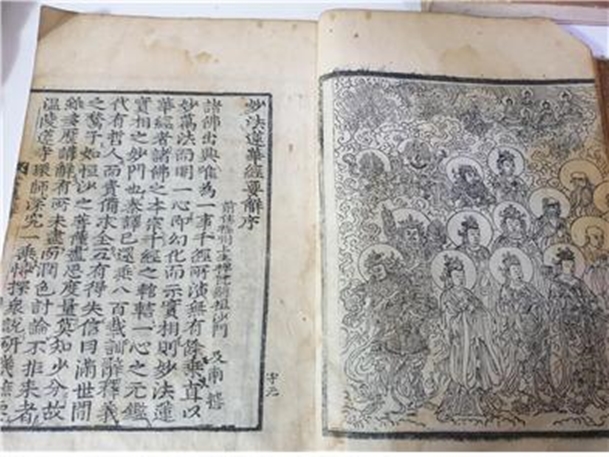 妙法蓮華經要解序
前住福州上生禪院嗣祖沙門 及南 撰
諸佛出興唯為一事千經所演無有餘乘直以
妙萬法而明一心即幻化而示實相則妙法蓮
華經者諸佛之本宗千經之轄轄一心之元鑑
實相之妙門也秦譯已還乘八百載訓辭釋義
代有哲人而責備求全互有得失信目滿世間
之鶖子如恒沙之菩薩盡思度量莫知少分故
雖婁歷講解有所未盡而潤色討論不推來者
溫陵蓮寺環師深究一乘博採衆說研幾